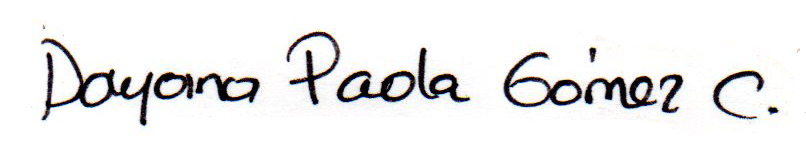 Dayana Paola Gómez C.